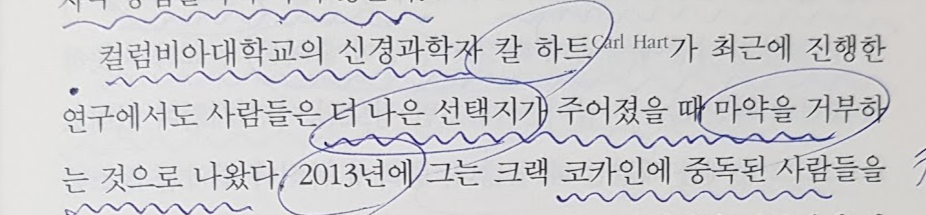 컬럼비아대학교의 신경과학자 칼 하트Carl Hart가 최근에 진행한
연구에서도 사람들은 더 나은 선택지가 주어졌을 때 마약을 거부하
는 것으로 나왔다. 2013년에 그는 크랙 코카인에 중독된 사람들을